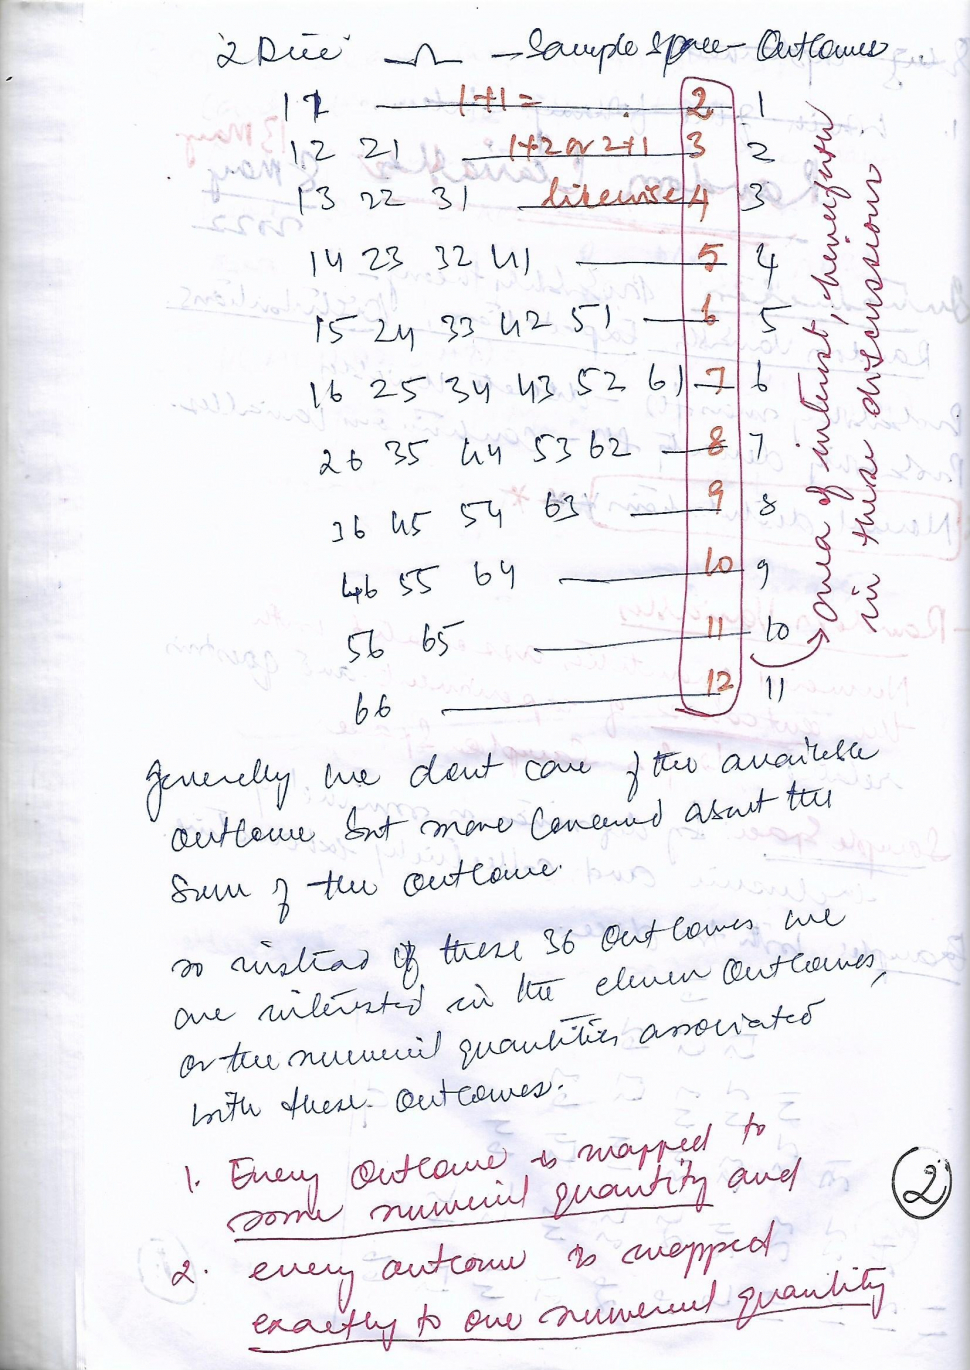 2 Dice Ω - Sample Space - Outcomes
11 1+1= 2 1
12 21 1+2 or 2+1 3 2
13 22 31 likewise 4 3
14 23 32 41 5 4
15 24 33 42 51 6 5
16 25 34 43 52 61 7 6
26 35 44 53 62 8 7
36 45 54 63 9 8
46 55 64 10 9
56 65 11 10
66 12 11
area of interest, henceforth
in these discussions
Generally we dont care of the available
outcome but more concerned about the
sum of the outcome.
so instead of these 36 outcomes we
are interested in the eleven outcomes,
or the numeric quantities associated
with these outcomes.
1. Every outcome is mapped to
some numeric quantity and
2. every outcome is mapped
exactly to one numeric quantity
2